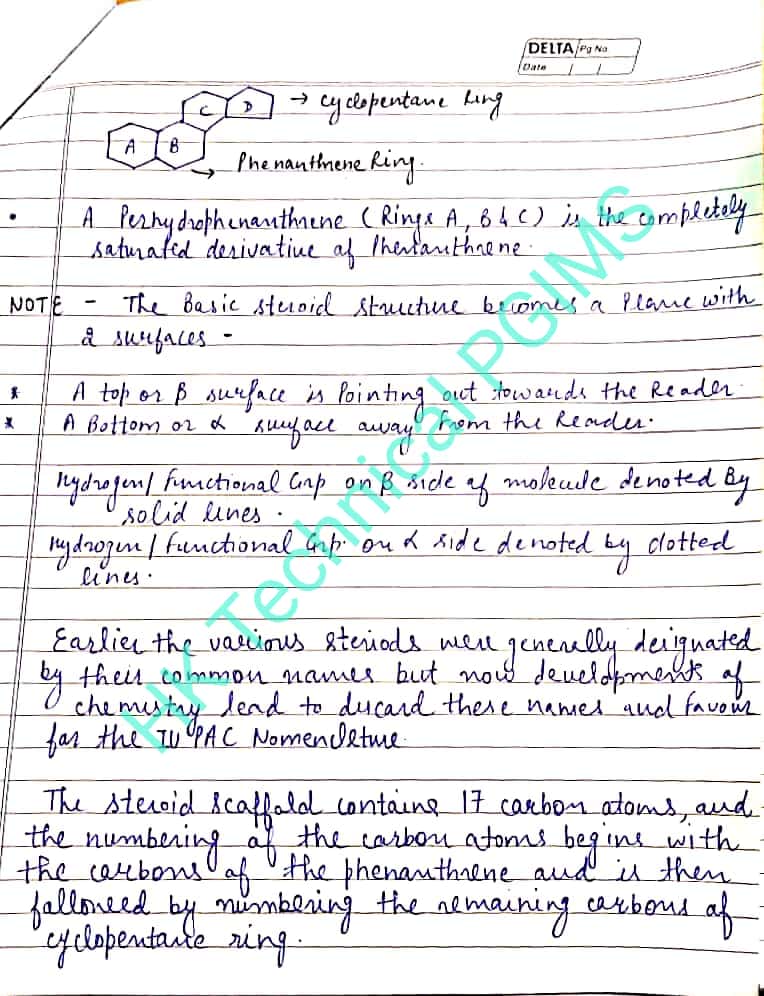 DELTA Pg No
Date / /
C D → cyclopentane Ring
A B
→ Phenanthrene Ring.
• A Perhydrophenanthrene (Rings A, B & C) is the completely
saturated derivative of Phenanthrene.
NOTE - The Basic steroid structure becomes a Plane with
2 surfaces -
* A top or β surface is Pointing out towards the Reader.
* A Bottom or α surface away from the Reader.
Hydrogen/ Functional Grp on β side of molecule denoted By
solid lines.
Hydrogen/ Functional Grp. on α side denoted by dotted
lines.
Earlier the various steriods were generelly deignated
by their common names but now developments of
chemistry lead to ducard these names and favour
for the IUPAC Nomencleture.
The steroid scaffold contains 17 carbon atoms, and
the numbering of the carbon atoms begins with
the carbons of the phenanthrene and is then
followed by numbering the remaining carbons of
cyclopentane ring.
HK Technical PGIMS